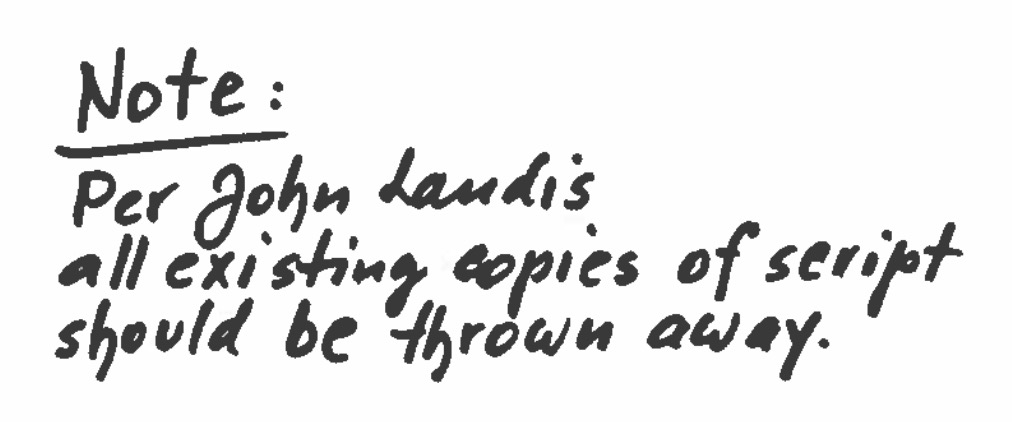 Note:
Per John Landis
all existing copies of script
should be thrown away.